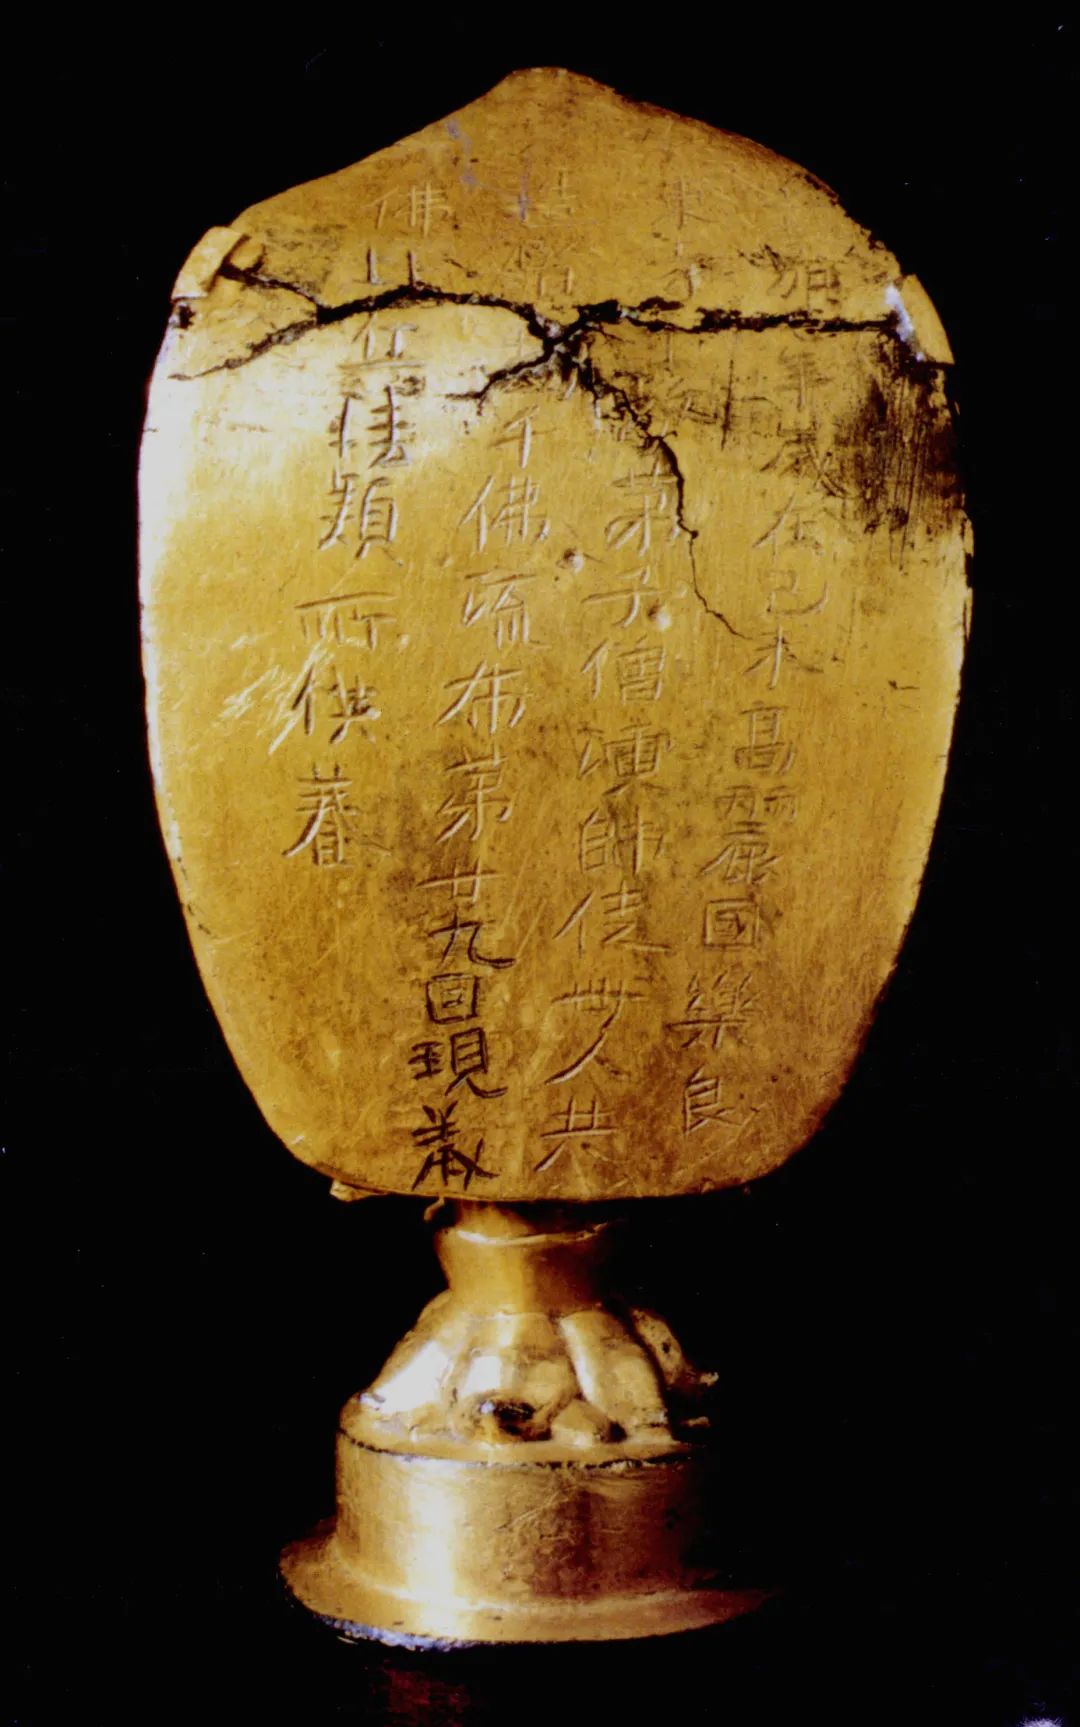 年歲在己未高麗國樂良
東寺弟子僧演師徒卌人共
造賢千佛流布第廿九回現義
佛比丘類所供養